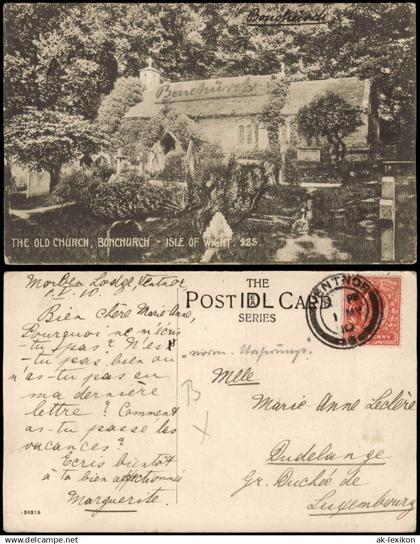 Bonchurch
Bonchurch
THE OLD CHURCH, BONCHURCH - ISLE OF WIGHT. 125.
THE
POST IDL CARD
SERIES
VENTNOR
PENNY
Lodge, Ventnor
Bien chère Marie-Anne,
Pourquoi ne m'écris-
-tu pas? N'es-
-tu pas bien ou
n'as-tu pas eu
ma dernière
lettre? Comment
as-tu passé les
vacances?
Ecris bientôt
à ta bien affectionnée
Marguerite.
Melle
Marie-Anne Leclère
Dudelange
Gr. Duchée de
Luxembourg
B
X
www.ak-lexikon.de